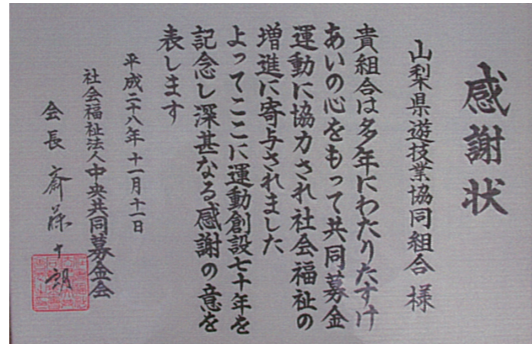 感謝状
山梨県遊技業協同組合 様
貴組合は多年にわたりたすけ
あいの心をもって共同募金
運動に協力され社会福祉の
増進に寄与されました
よってここに運動創設七十年を
記念し深甚なる感謝の意を
表します
平成二十八年十一月十一日
社会福祉法人中央共同募金会
会長 斎藤十朗